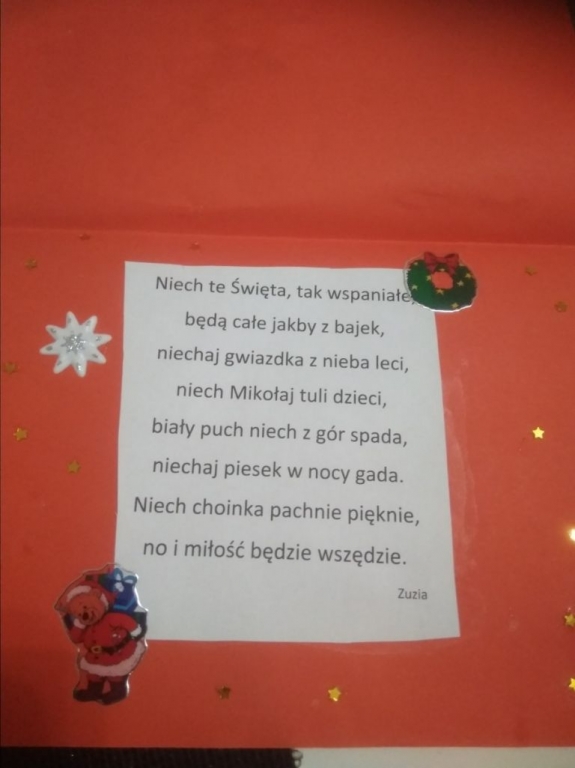 Niech te Święta, tak wspaniałe,
będą całe jakby z bajek,
niechaj gwiazdka z nieba leci,
niech Mikołaj tuli dzieci,
biały puch niech z gór spada,
niechaj piesek w nocy gada.
Niech choinka pachnie pięknie,
no i miłość będzie wszędzie.
Zuzia